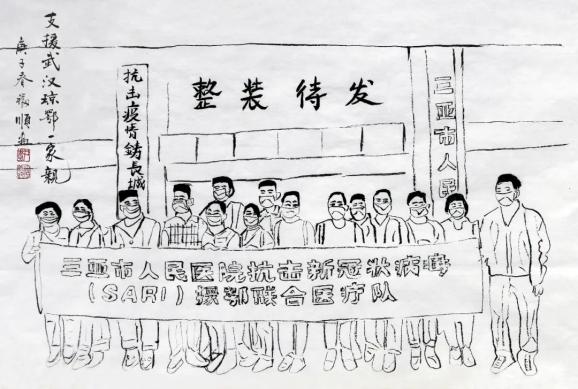 支援武汉琼鄂一家親
庚子春顺
抗击疫情鋳長城
整装待发
三亚市人民
三亚市人民医院抗击新冠状病毒
(SARI)援鄂联合医疗队